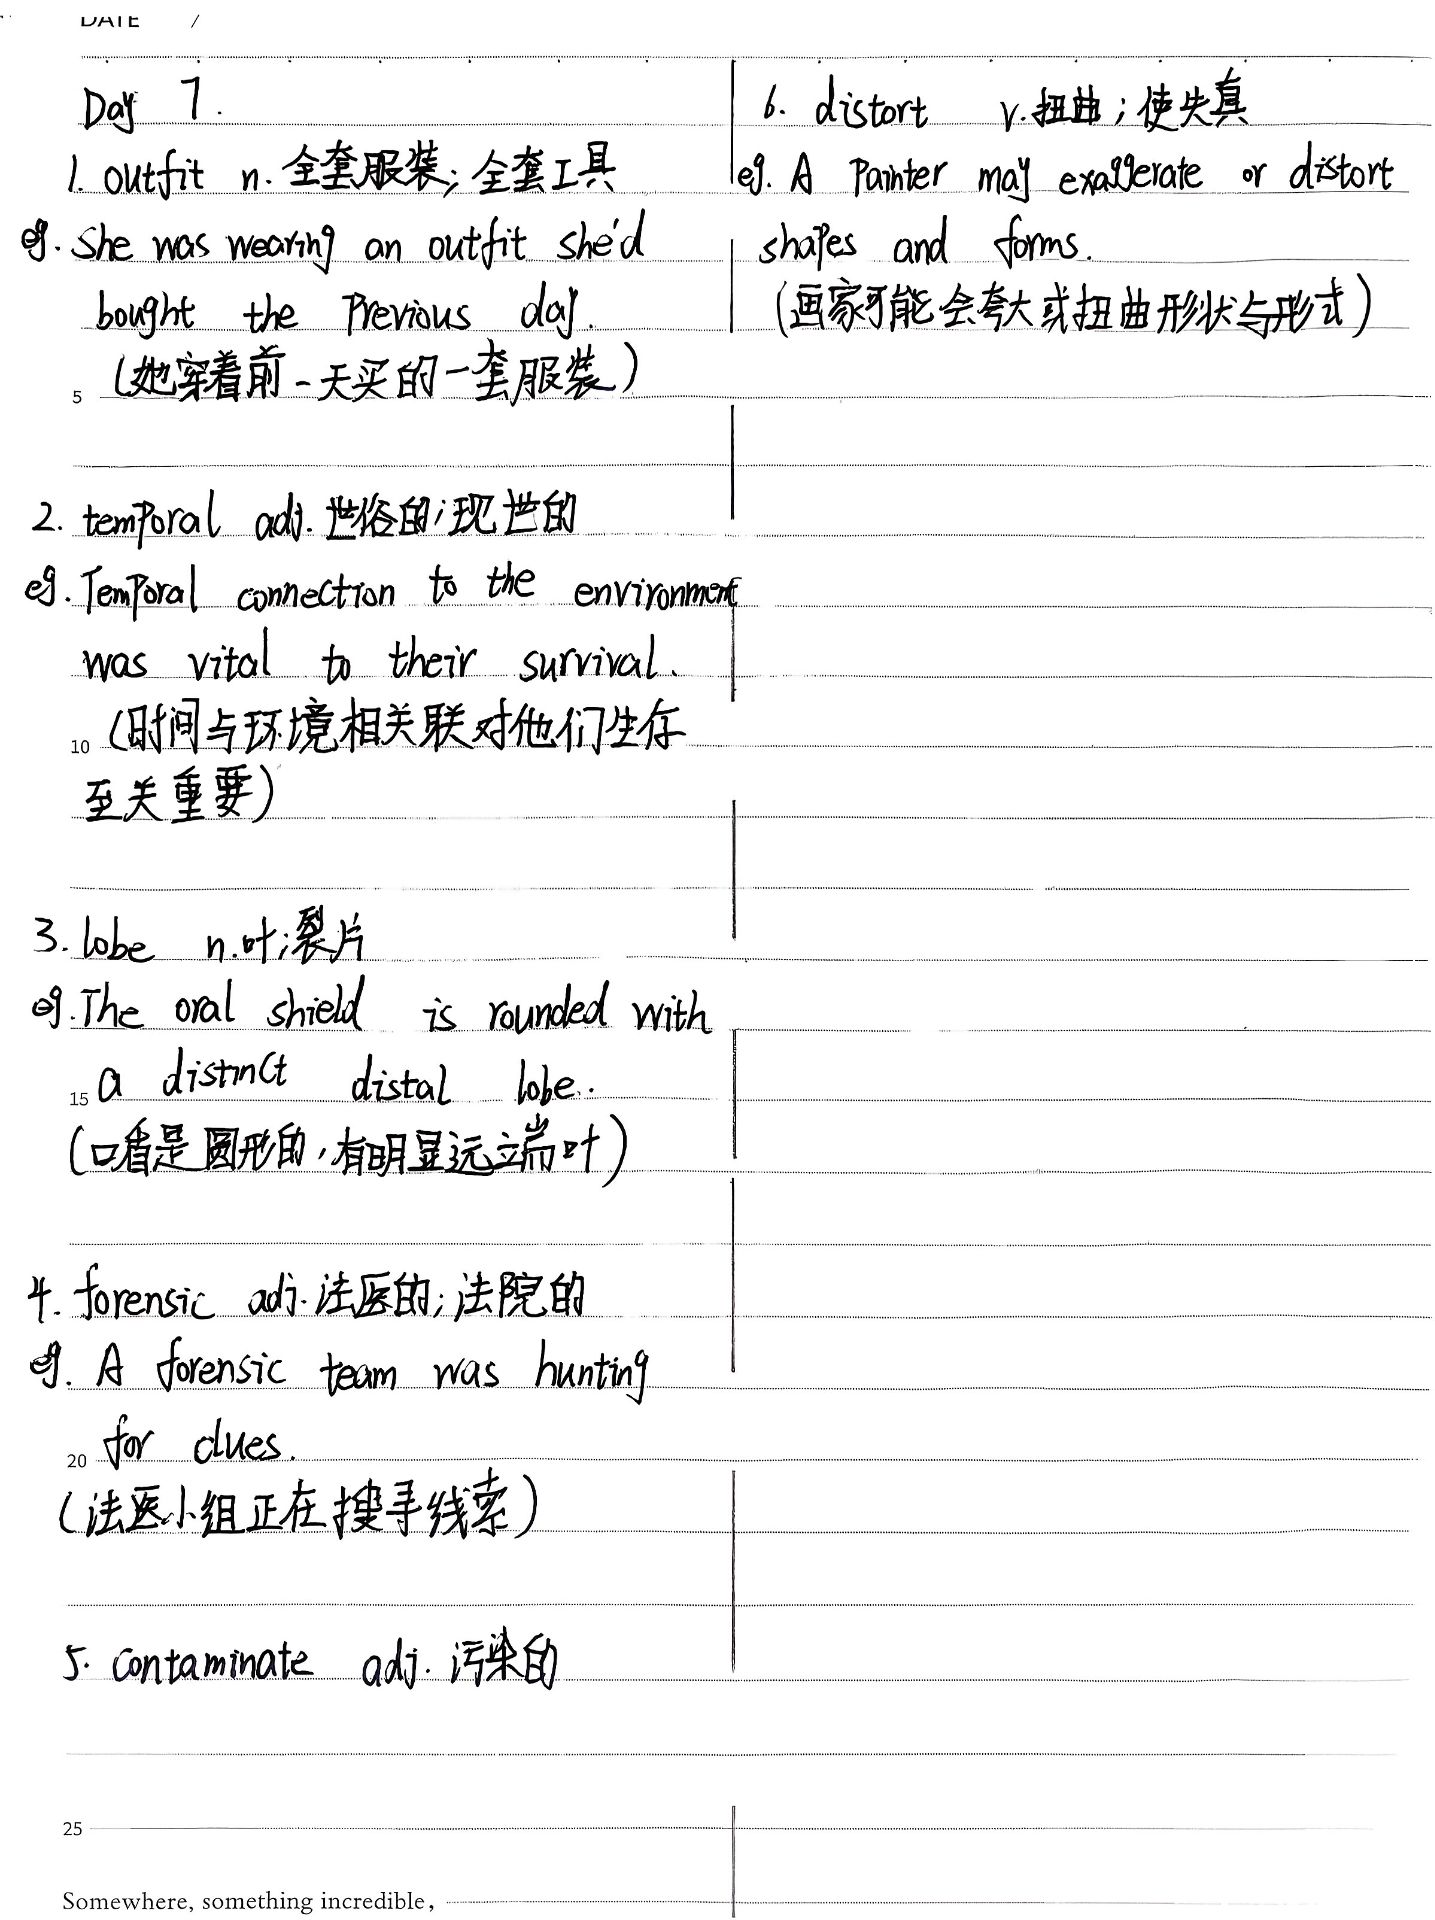 DATE /
Day 7.
1. outfit n. 全套服装; 全套工具
eg. She was wearing an outfit she'd
bought the Previous day.
5 (她穿着前一天买的一套服装)
2. temporal adj. 世俗的;现世的
eg. Temporal connection to the environment
was vital to their survival.
10 (时间与环境相关联对他们生存
至关重要)
3. lobe n.叶;裂片
eg. The oral shield is rounded with
15 a distinct distal lobe.
(口盾是圆形的,有明显远端叶)
4. forensic adj. 法医的; 法院的
eg. A forensic team was hunting
20 for clues.
(法医小组正在搜寻线索)
5. contaminate adj. 污染的
25
6. distort v.扭曲;使失真
eg. A Painter may exaggerate or distort
shapes and forms.
(画家可能会夸大或扭曲形状与形式)
Somewhere, something incredible,